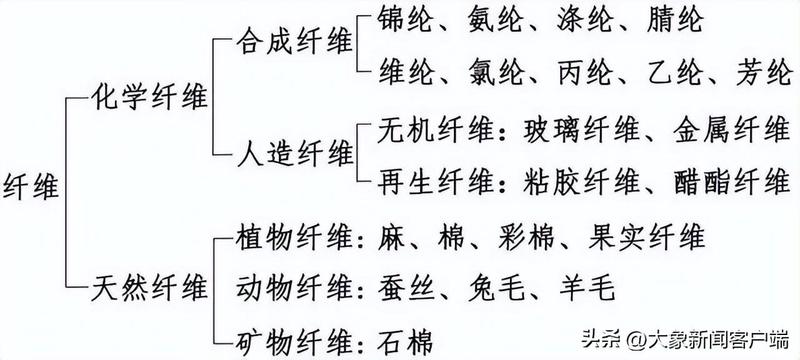 锦纶、氨纶、涤纶、腈纶
合成纤维
维纶、氯纶、丙纶、乙纶、芳纶
化学纤维
无机纤维：玻璃纤维、金属纤维
人造纤维
再生纤维：粘胶纤维、醋酯纤维
纤维
植物纤维：麻、棉、彩棉、果实纤维
天然纤维
动物纤维：蚕丝、兔毛、羊毛
矿物纤维：石棉
头条 @大象新闻客户端